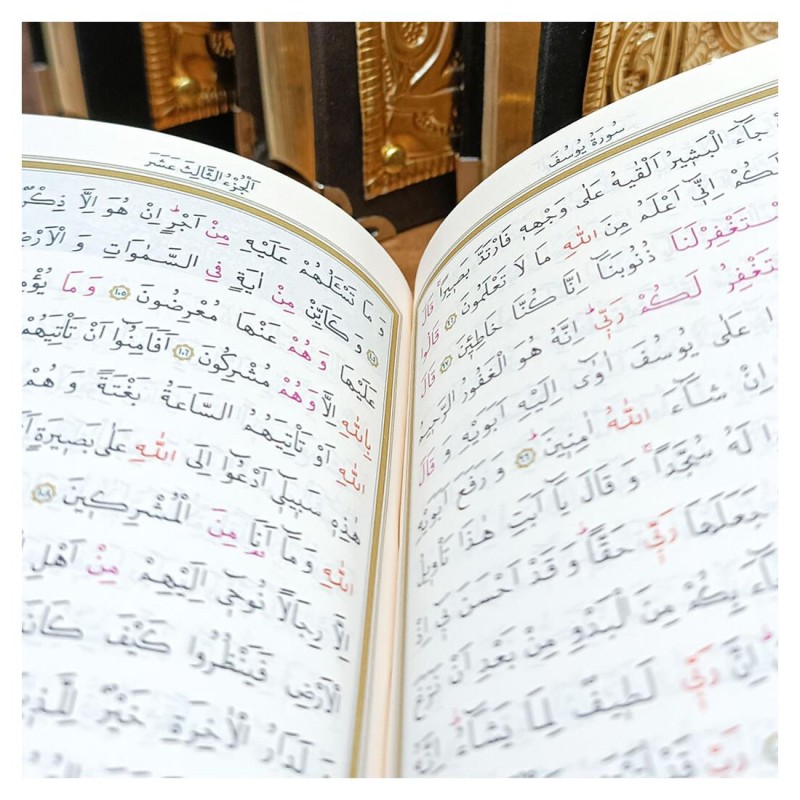 سُورَةُ يُوسُفَ
جَٓاءَ الْبَشِيرُ اَلْقٰيهُ عَلٰى وَجْهِهٖ فَارْتَدَّ بَصِيرًاۚ قَالَ
لَكُمْ اِنّٖٓي اَعْلَمُ مِنَ اللّٰهِ مَا لَا تَعْلَمُونَ ﴿٩٦﴾ قَالُوا
اسْتَغْفِرْلَنَا ذُنُوبَنَٓا اِنَّا كُنَّا خَاطِـٖٔينَ ﴿٩٧﴾ قَالَ
اَسْتَغْفِرُ لَكُمْ رَبّٖيۜ اِنَّهُ هُوَ الْغَفُورُ الرَّحٖيمُ
عَلٰى يُوسُفَ اٰوٰٓى اِلَيْهِ اَبَوَيْهِ وَ قَالَ
اِنْ شَٓاءَ اللّٰهُ اٰمِنٖينَۜ ﴿٩٩﴾ وَ رَفَعَ اَبَوَيْهِ
لَهُ سُجَّدًاۚ وَ قَالَ يَٓا اَبَتِ هٰذَا تَأْوٖيلُ
جَعَلَهَا رَبّٖي حَقًّاۜ وَ قَدْ اَحْسَنَ بٖٓي اِذْ
بِكُمْ مِنَ الْبَدْوِ مِنْ بَعْدِ اَنْ نَزَغَ
اِنَّ رَبّٖي لَطٖيفٌ لِمَا يَشَٓاءُۜ اِنَّهُ
رَبِّ قَدْ
اَلْجُزْءُ الثَّالِثَ عَشَرَ
وَ مَا تَسْـَٔلُهُمْ عَلَيْهِ مِنْ اَجْرٍۜ اِنْ هُوَ اِلَّا ذِكْرٌ
﴿١٠٤﴾ وَ كَاَيِّنْ مِنْ اٰيَةٍ فِي السَّمٰوَاتِ وَ الْاَرْضِ
عَلَيْهَا وَ هُمْ عَنْهَا مُعْرِضُونَ ﴿١٠٥﴾ وَ مَا يُؤْمِنُ
بِاللّٰهِ اِلَّا وَ هُمْ مُشْرِكُونَ ﴿١٠٦﴾ اَفَاَمِنُٓوا اَنْ تَأْتِيَهُمْ
اللّٰهِ اَوْ تَأْتِيَهُمُ السَّاعَةُ بَغْتَةً وَ هُمْ
هٰذِهٖ سَبٖيلٖٓي اَدْعُٓوا اِلَى اللّٰهِ عَلٰى بَصٖيرَةٍ
اللّٰهِ وَ مَٓا اَنَا۬ مِنَ الْمُشْرِكٖينَ ﴿١٠٨﴾
اِلَّا رِجَالًا نُوحٖٓي اِلَيْهِمْ مِنْ اَهْلِ
الْاَرْضِ فَيَنْظُرُوا كَيْفَ كَانَ
لَدَارُ الْاٰخِرَةِ خَيْرٌ لِلَّذٖينَ